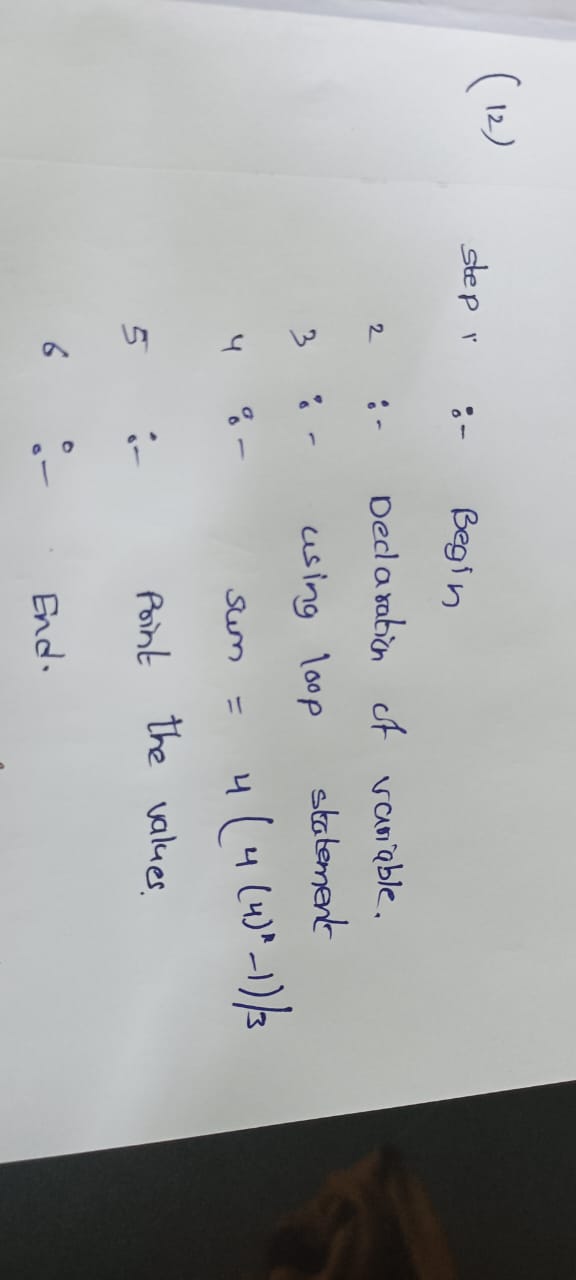 (12) step 1 :- Begin
2 :- Declaration of variable.
3 :- using loop statement
4 :- sum = 4 (4 (4)² -1))/3
5 :- Point the values.
6 :- End.